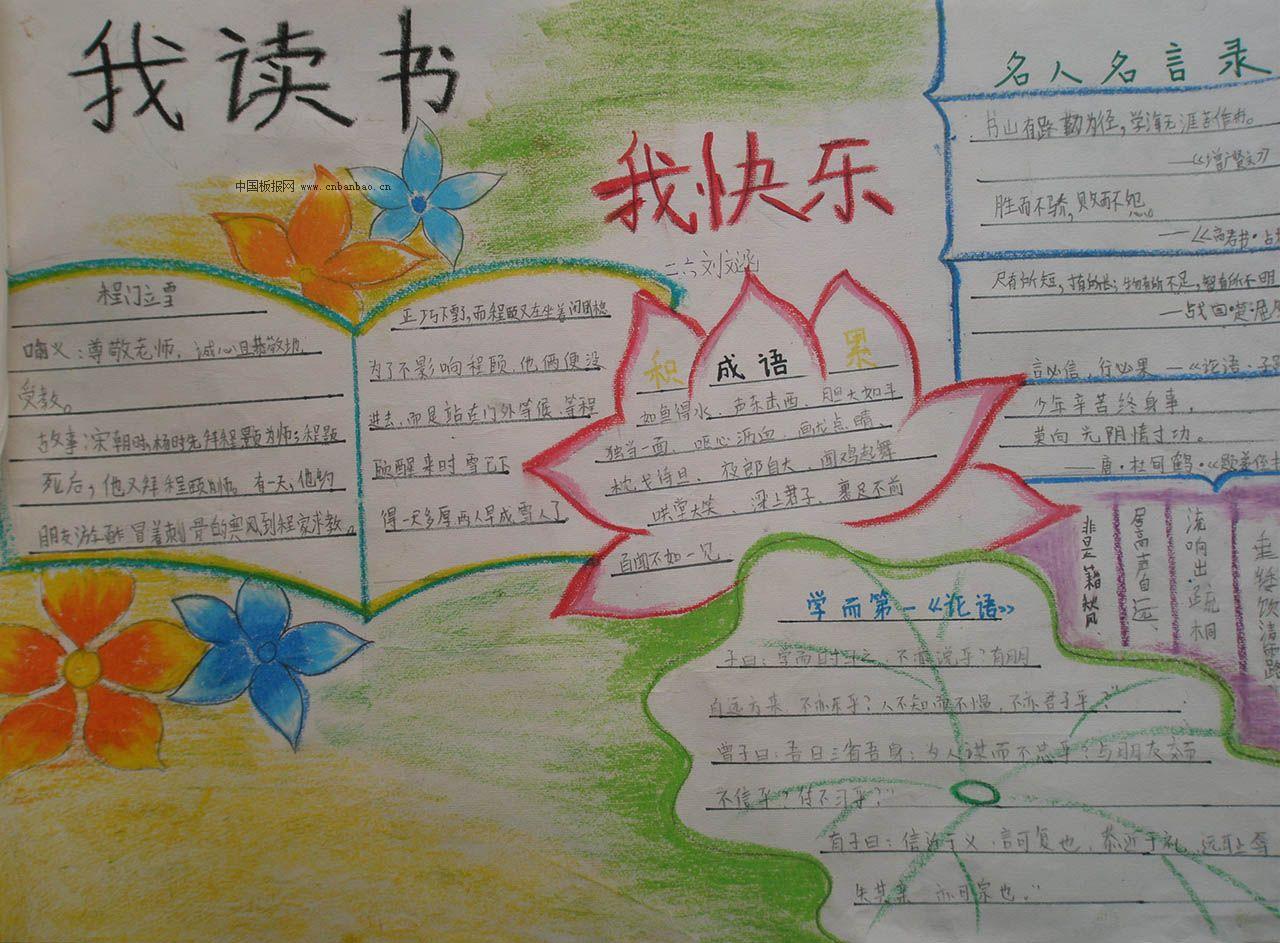 我读书
中国板报网 www.cnbanbao.cn
我快乐
二六刘文涵
程门立雪
喻义：尊敬老师，诚心且恭敬地
受教。
故事：宋朝时，杨时先拜程颢为师；程颢
死后，他又拜程颐为师。有一天，他约
朋友游酢冒着刺骨的寒风到程家求教。
正巧下雪，而程颐又在坐着闭目
为了不影响程颐，他俩便没
进去，而是站在门外等候，等程
颐醒来时雪已下
得一尺多厚两人早成雪人了
积 成语 累
如鱼得水、声东击西、胆大如斗
独当一面、呕心沥血、画龙点睛、
枕戈待旦、夜郎自大、闻鸡起舞
哄堂大笑、梁上君子、裹足不前
百闻不如一见
名人名言录
书山有路勤为径，学海无涯苦作舟。
——《增广贤文》
胜而不骄，败而不怨。
——《商君书·占
尺有所短，寸有所长；物有所不足，智有所不明
——战国·楚·屈
言必信，行必果——《论语·子
少年辛苦终身事，
莫向光阴惰寸功。
——唐·杜荀鹤·《题弟侄书
垂緌饮清露，
流响出疏桐
居高声自远、
非是籍秋风、
学而第一《论语》
子曰：学而时习之，不亦说乎？有朋
自远方来，不亦乐乎？人不知而不愠，不亦君子乎？”
曾子曰：吾日三省吾身：为人谋而不忠乎？与朋友交而
不信乎？传不习乎？”
有子曰：信近于义，言可复也，恭近于礼，远耻辱
失其亲，亦可宗也。”